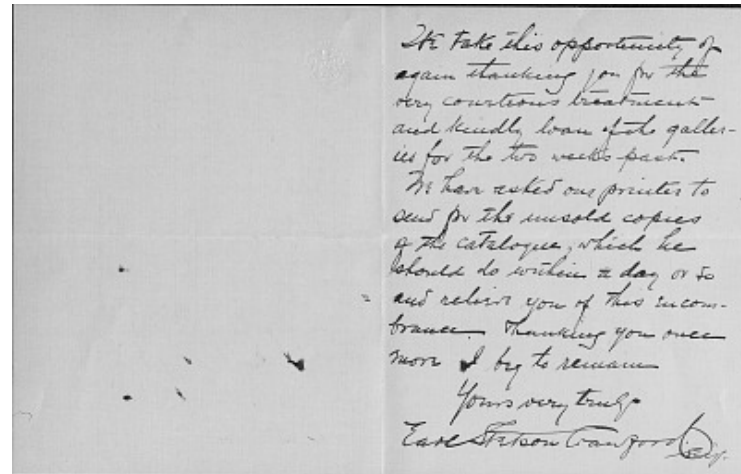 We take this opportunity of
again thanking you for the
very courteous treatment
and kindly loan of the galler-
ies for the two weeks past.
We have asked our printer to
send for the unsold copies
of the catalogue, which he
should do within a day or so
and relieve you of this incom-
brance. Thanking you once
more I beg to remain
Yours very truly
Earl Stetson Crawford